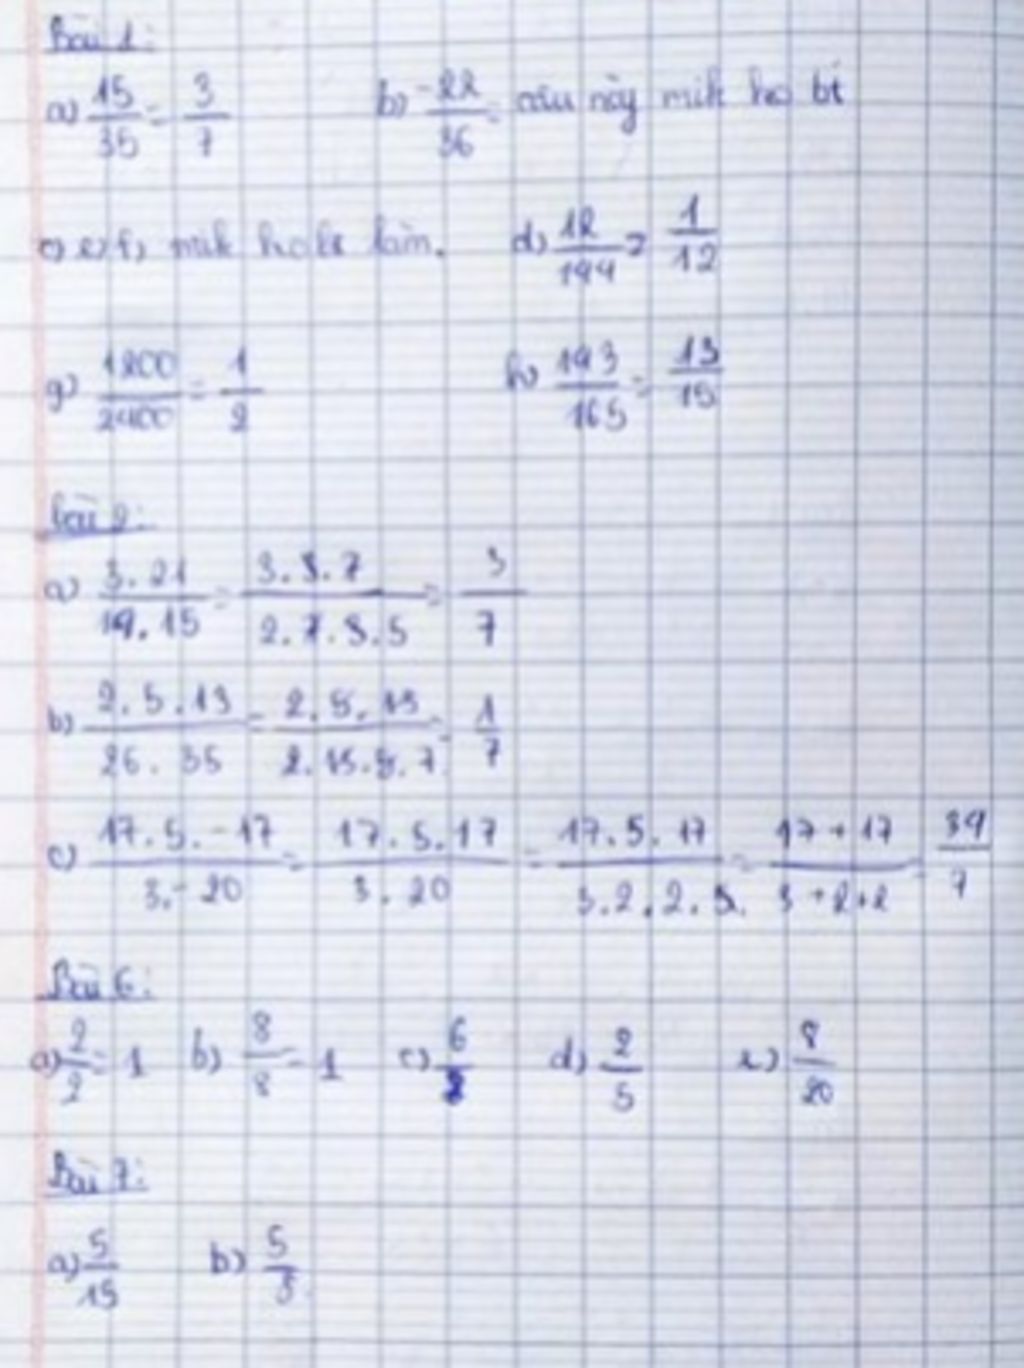 Bài 1:
a) 15/35 = 3/7 b) -22/36 = câu này mik ko bt
c) e) f) mik ko bt làm. d) 12/144 = 1/12
g) 1200/2400 = 1/2 h) 143/165 = 13/15
Bài 2:
a) 3.21/14.15 = 3.3.7/2.7.3.5 = 3/7
b) 2.5.13/26.35 = 2.5.13/2.13.5.7 = 1/7
c) 17.5.-17/3.-20 = 17.5.17/3.20 = 17.5.17/3.2.2.5. = 17+17/3+2+2 = 34/7
Bài 6:
a) 2/2 = 1 b) 8/8 = 1 c) 6/ d) 2/5 e) 8/20
Bài 7:
a) 5/15 b) 5/3